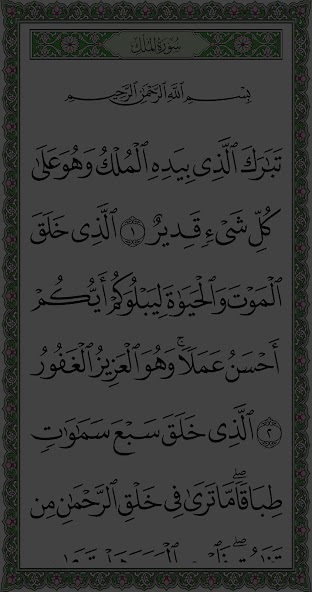 سُورَةُ المُلْكِ
بِسْمِ ٱللَّهِ ٱلرَّحْمَٰنِ ٱلرَّحِيمِ
تَبَٰرَكَ ٱلَّذِى بِيَدِهِ ٱلْمُلْكُ وَهُوَ عَلَىٰ
كُلِّ شَىْءٍ قَدِيرٌ ١ ٱلَّذِى خَلَقَ
ٱلْمَوْتَ وَٱلْحَيَوٰةَ لِيَبْلُوَكُمْ أَيُّكُمْ
أَحْسَنُ عَمَلًا ۚ وَهُوَ ٱلْعَزِيزُ ٱلْغَفُورُ
٢ ٱلَّذِى خَلَقَ سَبْعَ سَمَٰوَٰتٍ
طِبَاقًا ۖ مَّا تَرَىٰ فِى خَلْقِ ٱلرَّحْمَٰنِ مِن